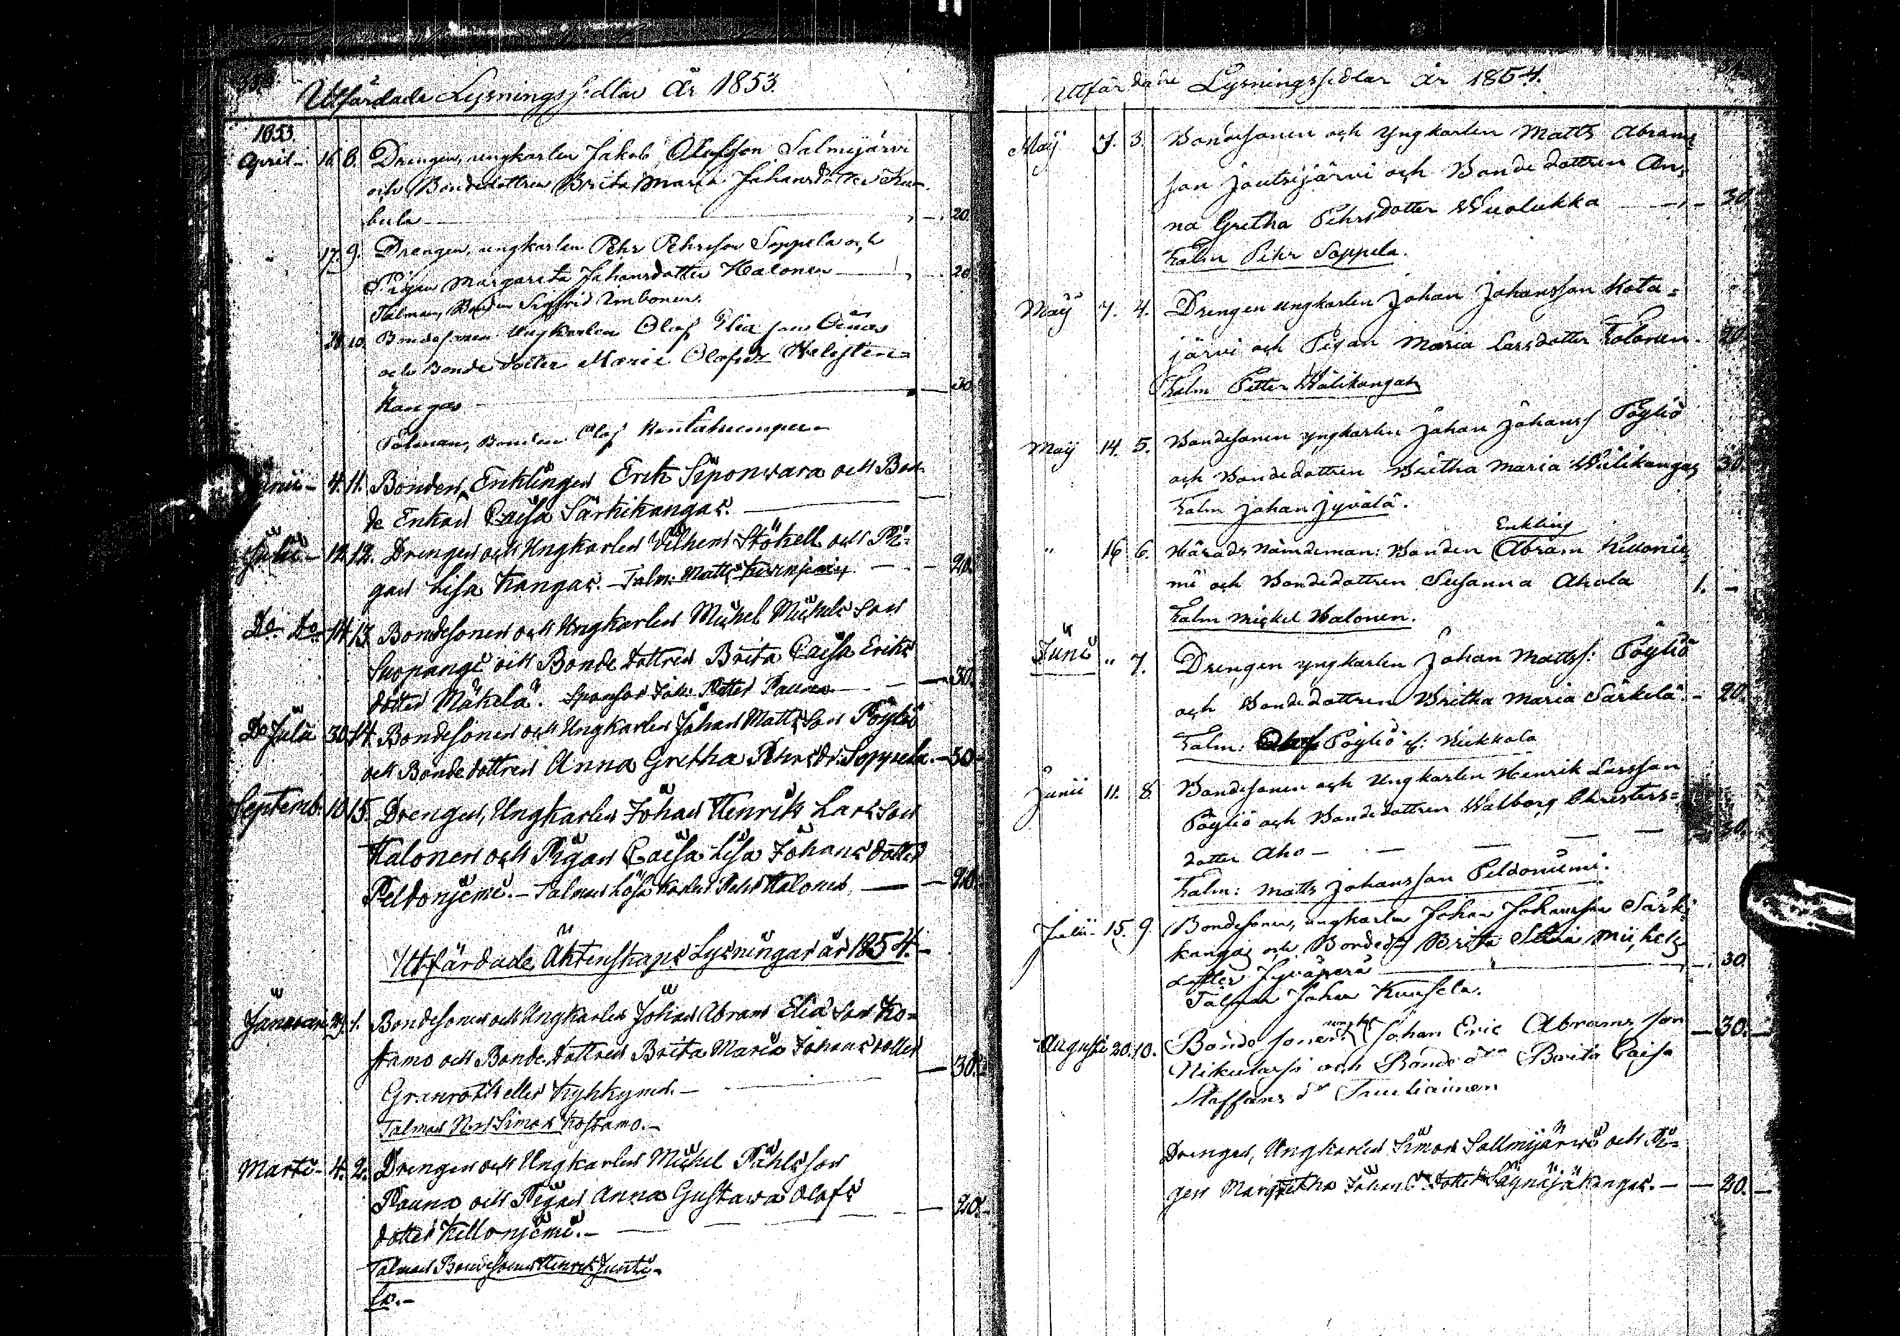 Utfärdade Lysningssedlar År 1853.
1853
April - 16. 8. Drengen, ungkarlen Jakob Olofsson Salmijärvi
och Bondedottren Brita Maria Johansdotter
20.
17. 9. Drengen, ungkarlen Pehr Pehrsson Soppela och
Pigan Margareta Johansdotter Halonen 20
Talman, Bonden Sigfrid
10. Bondesonen Ungkarlen Olof Elia son
och Bonde dotter Maria Olofsdr
kangas 30
Talman, Bonden Olof
4. 11. Bonden, Enklingen Erik Seponvara och Bon-
de Enkan Caisa Särkikangas.
Julii - 12. 12. Drengen och Ungkarlen Vilhem Stökell och Pi-
gan Lisa Kangas. - Talm: Matts 20.
Do Do 14. 13. Bondesonen och Ungkarlen Mickel Mickels son
Suopangi och Bonde dottren Brita Caisa Eriks
dotter Mäkelä. 30.
Do Julii 30. 14. Bondesonen och Ungkarlen Johan Matts son Pöyliö
och Bonde dottren Anna Gretha Pehrs dr Soppela. - 30
Septemb. 10. 15. Drengen, Ungkarlen Johan Henrik Lars son
Halonen och Pigan Caisa Lisa Johans dotter
Peldonjemi. - Talman Lösa Karlen Pehr Halonen 20.
Utfärdade Äktenskaps Lysningar år 1854. -
Januari 1. Bondesonen och Ungkarlen Johan Abram Elia son Ko-
stamo och Bonde dottren Brita Maria Johans dotter
Granroth eller Kyhkynen - 30.
Talman Simon Kostamo. -
Marti - 4. 2. Drengen och Ungkarlen Mickel Påhls son
Pauna och Pigan Anna Gustava Olofs
dotter Killonjemi. - 20.
Talman Bondesonen Henrik Junti-
la. -
Utfärdade Lysningssedlar år 1854.
Maij 7. 3. Bondesonen och yngkarlen Matts Abrams
son Joutsijärvi och Bonde dottren An-
na Gretha Pehrsdotter Wuolukka 30
Talm Pehr Soppela.
Maij 7. 4. Drengen ungkarlen Johan Johansson Kota=
järvi och Pigan Maria Larsdotter Halonen. 20
Talm Petter Wälikangas
Maij 14. 5. Bondesonen yngkarlen Johan Johanss Pöyliö
och Bondedottren Britha Maria Wälikangas 30.
Talm Johan Jyvälä.
Enkling
" 16 6. Härads Nämdeman: Bonden Abram Killonie
mi och Bondedottren Susanna Ahola 1. -
Talm Mickel Halonen.
Junii " 7. Drengen yngkarlen Johan Mattss: Pöyliö
och Bondedottren Britha Maria Särkelä - 20.
Talm: Olof Pöyliö
Junii 11. 8 Bondesonen och Ungkarlen Henrik Larsson
Pöyliö och Bondedottren Walborg Christers=
dotter Aho - 30.
Talm: Matts Johansson Peldoniemi.
Julii - 15. 9. Bondesonen, ungkarlen Johan Johansson Särki
kangas och Bondedr Brita Stina Mickels
dotter Jyväperä 30
Talman Johan Kuusela.
Augusti 20. 10. Bonde sonen ungk Johan Eric Abrams son
och Bonde dr Brita Caisa 30.
Staffans dr
Drengen, Ungkarlen Simon Sallmijärvi och Pi-
gan Margretha Johans dotter kangas. - 20. -